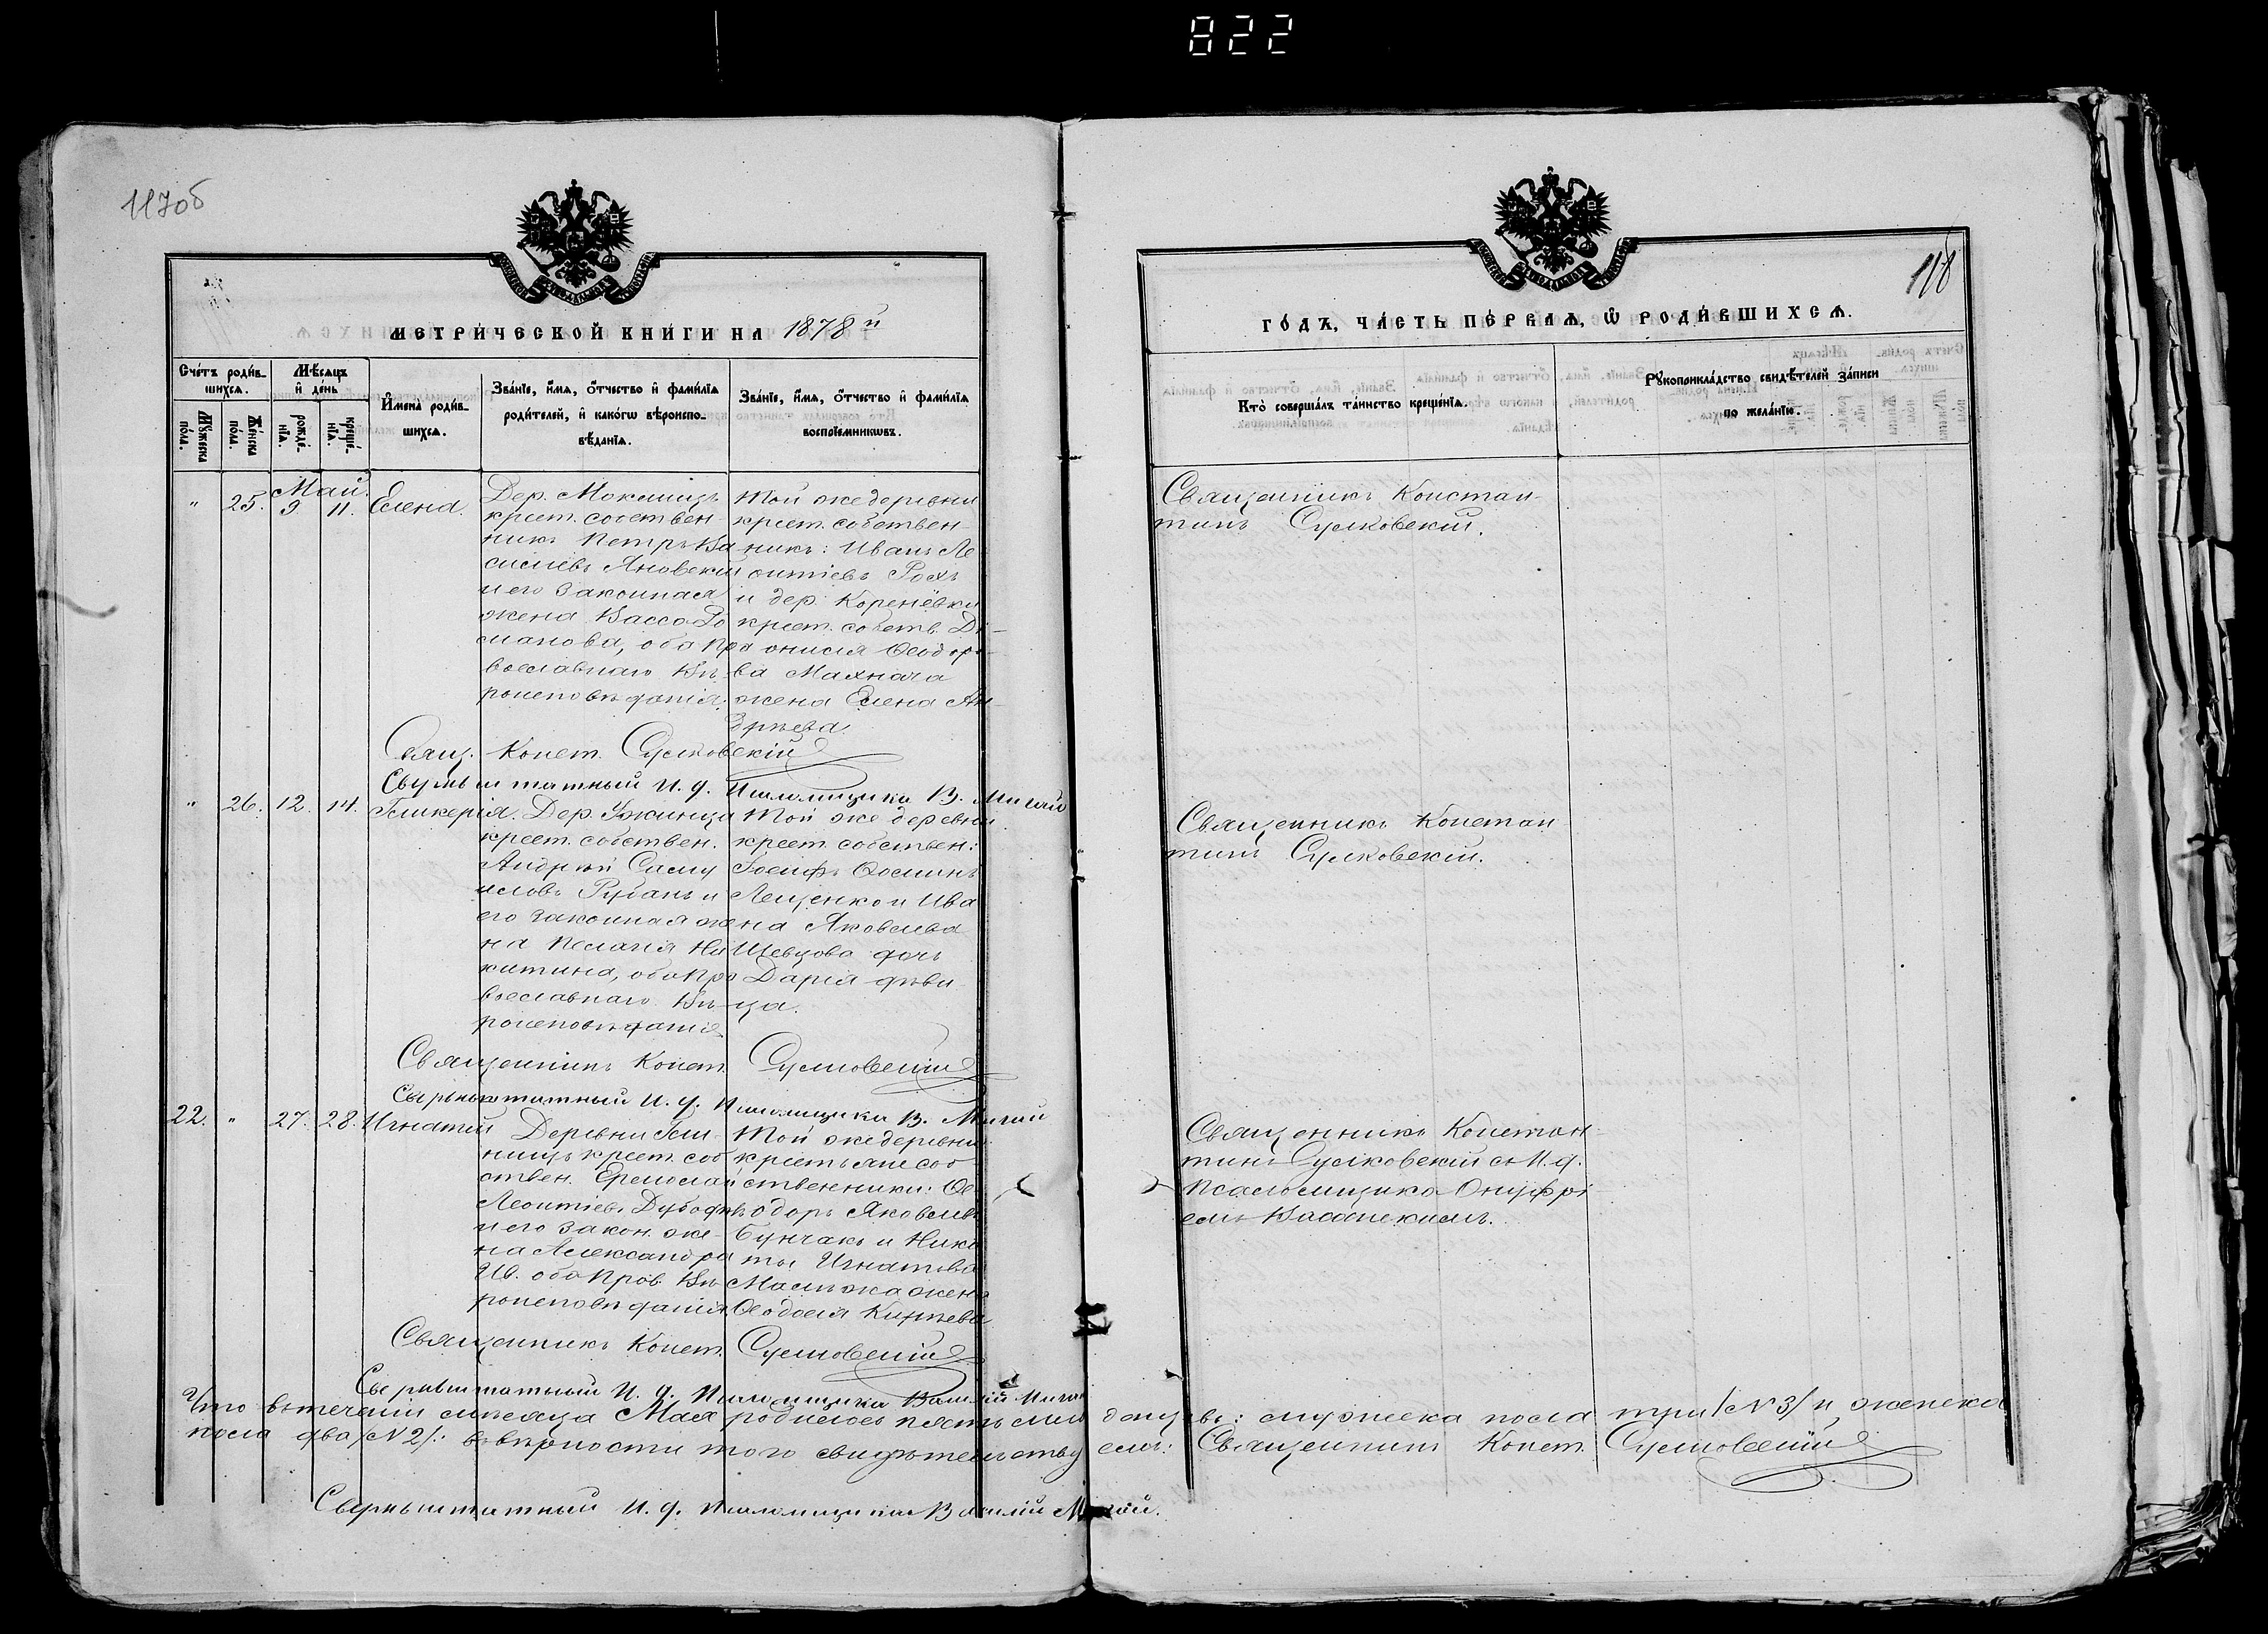 822
117об
118
МЕТРИ́ЧЕСКОЙ КНИ́ГИ НА 1878й
ГО́ДЪ, ЧА́СТЬ ПЕ́РВАѦ, Ѽ РОДИ́ВШИХСѦ.
Сче́тъ роди́вшихсѧ.
Мꙋ́жеска по́ла.
Же́нска по́ла.
Мѣ́сѧцъ и҆ де́нь
рожде́нїѧ.
креще́нїѧ.
И҆мена̀ роди́вшихсѧ.
Зва́нїе, и҆́мѧ, ѻ҆́тчество и҆ фами́лїѧ роди́телей, и҆ како́гѡ вѣроисповѣ́данїѧ.
Зва́нїе, и҆́мѧ, ѻ҆́тчество и҆ фами́лїѧ воспрїе́мникѡвъ.
Кто̀ соверша́лъ та́инство креще́нїѧ.
Рꙋкоприкла́дство свидѣ́телей за́писи по жела́нїю.
Май.
" 25. 9 11. Елена.
Дер. Мокишицъ
крест. собствен-
никъ Петръ Ва
силіевъ Яновскій
и его законная
жена Васса Ро
манова, оба пра
вославнаго Вѣ-
роисповѣданія.
Той же деревни
крест. собствен-
никъ: Иванъ Ле
онтіевъ Рохъ
и дер. Коренёвки
крест. собств. Ді-
онисія Ѳеодоро-
ва Махнача
жена Елена Ан-
дрѣева.
Священникъ Констан-
тинъ Сулковскій.
Свящ. Конст. Сулковскій
Сверхштатный И. д. Псаломщика В. Мигай
" 26. 12. 14. Гликерія.
Дер. Ужинца
крест. собствен.
Андрей Саму
иловъ Рубанъ и
его законная же
на Пелагія Ни
китина, оба пра
вославнаго Вѣ-
роисповѣданія
Той же деревни
крест. собствен:
Іосифъ Ѳоминъ
Лещенко и Ива
на Яковлева
Шевцова дочь
Дарія дѣви
ца.
Священникъ Констан
тинъ Сулковскій.
Священникъ Конст. Сулковскій
Сверхштатный И. д. Псаломщика В. Мигай
22. " 27. 28. Игнатій
Деревни Гли-
ницъ крест. соб
ствен. Ермолай
Леонтіевъ
и его закон. же-
на Александра
Ив. оба прав. Вѣ-
роисповѣданія.
Той же деревни
крестьяне соб-
ственники: Ѳе-
одоръ Яковлевъ
Бунчакъ и Ники
ты Игнатова
жена
Ѳеодосія
Священникъ Констан-
тинъ Сулковскій съ И. д.
Псаломщика Онуфрі
емъ
Священникъ Конст. Сулковскій
Сверхштатный И. д. Псаломщика Василій Мигай
Что втеченіи мѣсяца Мая родилось пять младенцевъ: мужеска пола три /№3/ и женска
пола два /№2/: въ вѣрности того свидѣтельствуемъ: Священникъ Конст. Сулковскій
Сверхштатный И. д. Псаломщика Василій Мигай.